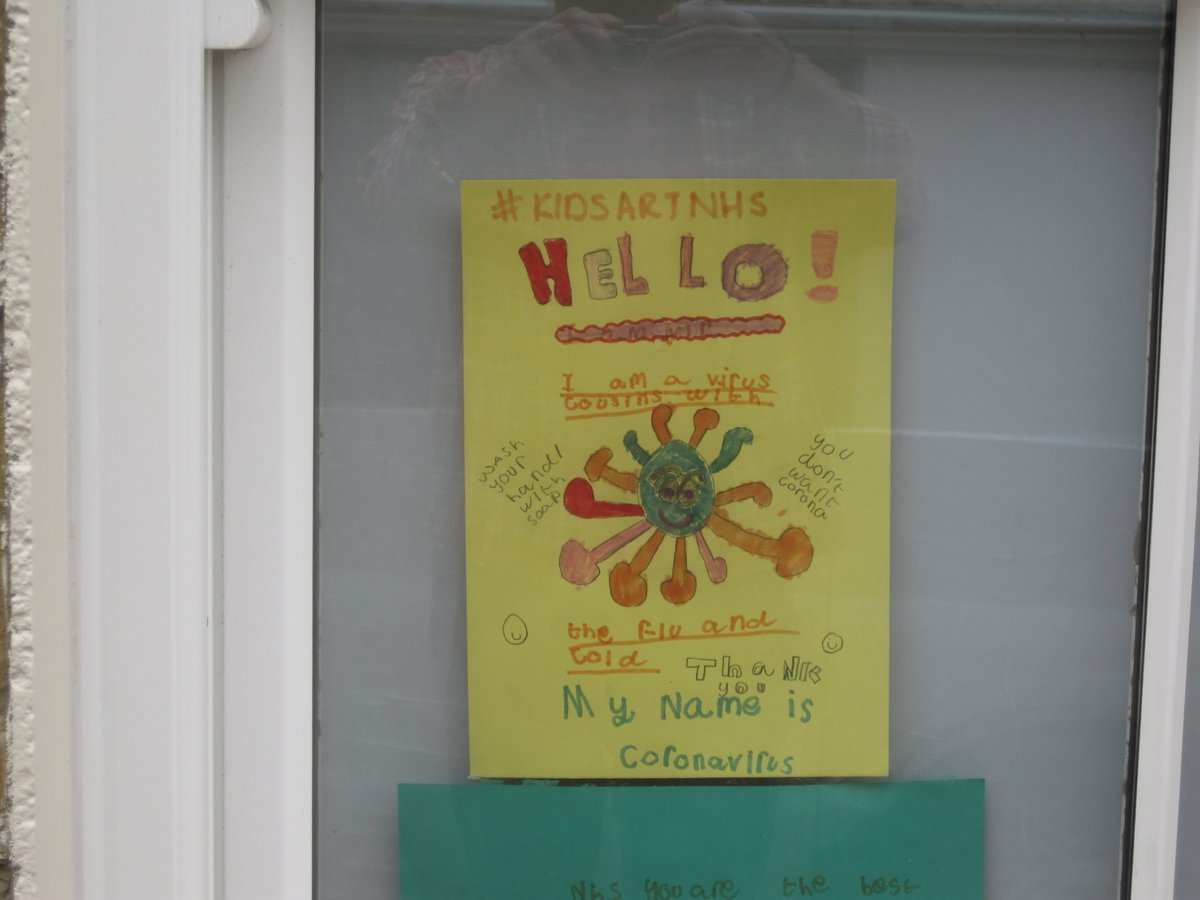 #KIDSARTNHS
HELLO!
I am a virus
cousins with
wash
your
hand/
with
soap
you
don't
want
corona
the flu and
cold
Thank
you
My Name is
Coronavirus
Nhs you are the best